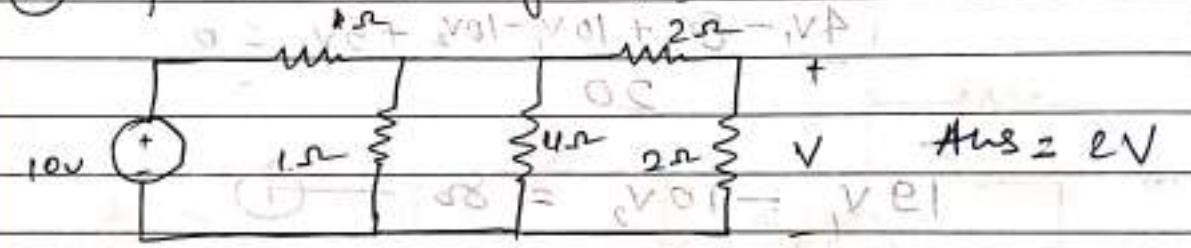 1Ω 2Ω
+
+
10v 1Ω 4Ω 2Ω V Ans = 2V
-
-